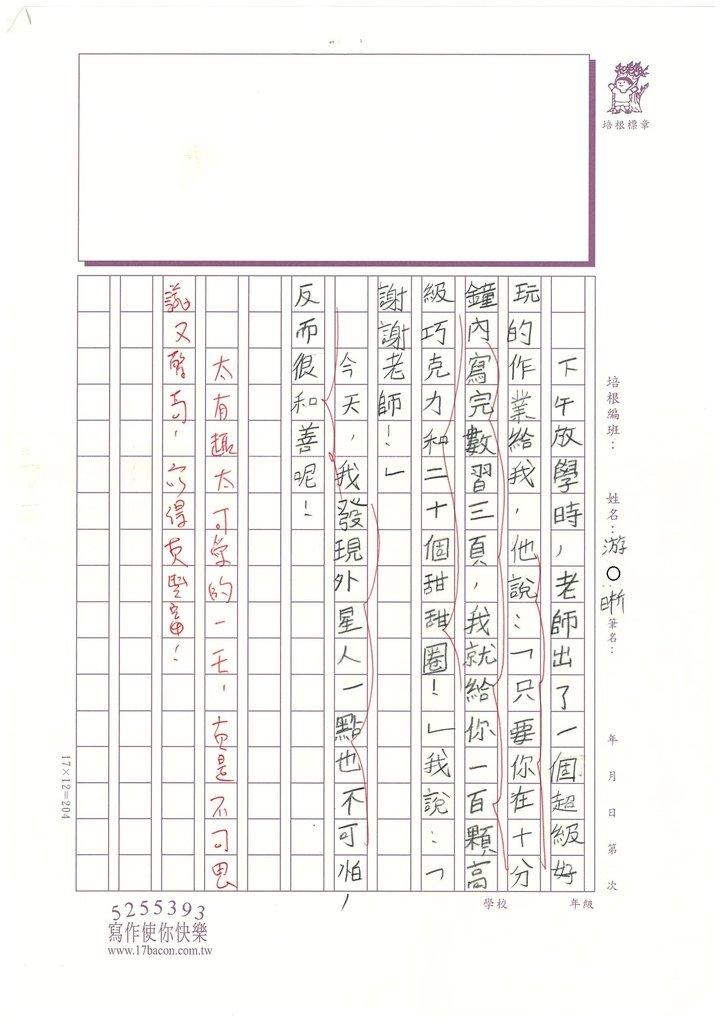 培根標章
培根編班：
姓名：游○晰
筆名：
年 月 日 第 次
學校 年級
下午放學時，老師出了一個超級好
玩的作業給我，他說：「只要你在十分
鐘內寫完數習三頁，我就給你一百顆高
級巧克力和二十個甜甜圈！」我說：「
謝謝老師！」
今天，我發現外星人一點也不可怕，
反而很和善呢！
太有趣太可愛的一天，真是不可思
議又驚奇，寫得真豐富！
17×12=204
5255393
寫作使你快樂
www.17bacon.com.tw